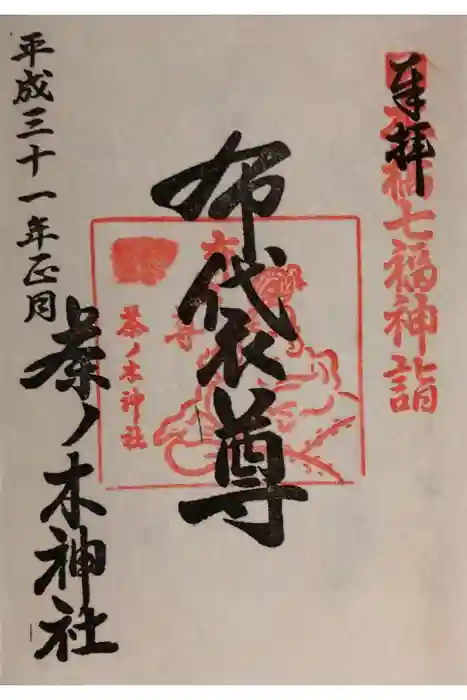 奉拝
七福神詣
布袋尊
茶ノ木神社
平成三十一年正月
茶ノ木神社